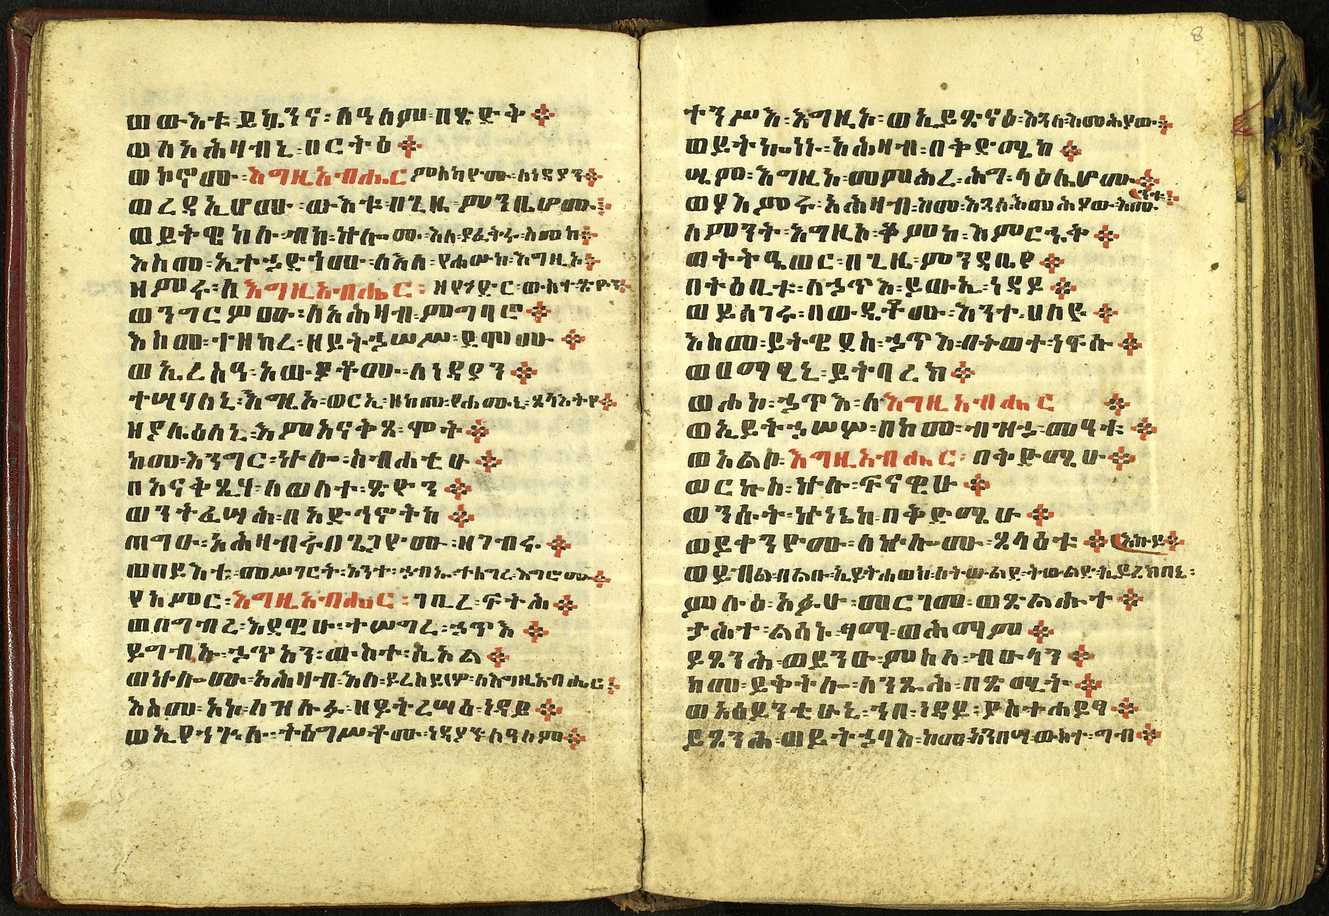 ወውእቱ፡ ይኴንና፡ ለዓለም፡ በጽድቅ፨
ወለአሕዛብኒ፡ በርትዕ፨
ወኮኖሙ፡ እግዚአብሔር ምስካዮሙ፡ ለነዳያን፨
ወረዳኢሆሙ፡ ውእቱ፡ በጊዜ፡ ምንዳቤሆሙ፨
ወይትዌከሉ፡ ብከ፡ ኵሎሙ፡ እለ፡ ያፈቅሩ፡ ስመከ፨
እስመ፡ ኢተኃድጎሙ፡ ለእለ፡ የሐሡከ፡ እግዚኦ፨
ዘምሩ፡ ለእግዚአብሔር፡ ዘየኀድር፡ ውስተ፡ ጽዮን፨
ወንግርዎሙ፡ ለአሕዛብ፡ ምግባሮ፨
እስመ፡ ተዘከረ፡ ዘይትኃሠሥ፡ ደሞሙ፨
ወኢረስዓ፡ አውያቶሙ፡ ለነዳያን፨
ተሣሃለኒ፡ እግዚኦ፡ ወርኢ፡ ዘከመ፡ የሐሙኒ፡ ጸላእትየ፨
ዘያሌዕለኒ፡ እምአናቅጸ፡ ሞት፨
ከመ፡ እንግር፡ ኵሎ፡ ስብሐቲሁ፨
በአናቅጺሃ፡ ለወለተ፡ ጽዮን፨
ወንትፈሣሕ፡ በአድኅኖትከ፨
ጠግዑ፡ አሕዛብ፡ በጌጋዮሙ፡ ዘገብሩ፨
ወበይእቲ፡ መሥገርት፡ እንተ፡ ኃብኡ፡ ተሠግረ፡ እግሮሙ፨
የአምር፡ እግዚአብሔር፡ ገቢረ፡ ፍትሕ፨
ወበግብረ፡ እደዊሁ፡ ተሠግረ፡ ኃጥእ፨
ይግብኡ፡ ኃጥአን፡ ውስተ፡ ሲኦል፨
ወኵሎሙ፡ አሕዛብ፡ እለ፡ ይረስዕዎ፡ ለእግዚአብሔር፨
እስመ፡ አኮ፡ ለዝሉፉ፡ ዘይትረሣዕ፡ ነዳይ፨
ወኢየኀጕሉ፡ ትዕግሥቶሙ፡ ነዳያን፡ ለዓለም፨
8
ተንሥእ፡ እግዚኦ፡ ወኢይጽናዕ፡ እጓለ፡ እመሕያው፨
ወይትኰነኑ፡ አሕዛብ፡ በቅድሜከ፨
ሢም፡ እግዚኦ፡ መምሕረ፡ ሕግ፡ ላዕሌሆሙ፨
ወያእምሩ፡ አሕዛብ፡ ከመ፡ እጓለ፡ እመሕያው፡ እሙ
ለምንት፡ እግዚኦ፡ ቆምከ፡ እምርኁቅ፨
ወትትዔወር፡ በጊዜ፡ ምንዳቤየ፨
በትዕቢቱ፡ ለኃጥእ፡ ይውኢ፡ ነዳይ፨
ወይሠገሩ፡ በውዴቶሙ፡ እንተ፡ ሀለዩ፨
እስመ፡ ይትዌደስ፡ ኃጥእ፡ በፍትወተ፡ ነፍሱ፨
ወዐማፂኒ፡ ይትባረክ፨
ወሐኮ፡ ኃጥእ፡ ለእግዚአብሔር፨
ወኢይትኃሠሦ፡ በከመ፡ ብዝኃ፡ መዓቱ፨
ወአልቦ፡ እግዚአብሔር፡ በቅድሜሁ፨
ወርኩስ፡ ኵሉ፡ ፍናዊሁ፨
ወንሱት፡ ኵነኔከ፡ በቅድሜሁ፨
ወይቀንዮሙ፡ ለኵሎሙ፡ ጸላዕቱ፨
ወይብል፡ በልቡ፡ ኢይትሐወክ፡ ለትውልደ፡ ትውልድ፡ ኢይረክበኒ፡
ምሉዕ፡ አፉሁ፡ መርገመ፡ ወጽልሑተ፨
ታሕተ፡ ልሳኑ፡ ፃማ፡ ወሕማም፨
ይጼንሕ፡ ወይንዑ፡ ምስለ፡ ብዑላን፨
ከመ፡ ይቅትሎ፡ ለንጹሕ፡ በጽሚት፨
ወአዕይንቲሁኒ፡ ኀበ፡ ነዳይ፡ ያስተሐይፃ፨
ይጼንሕ፡ ወይትኃባእ፡ ከመ፡ አንበሳ፡ ውስተ፡ ግብ፨